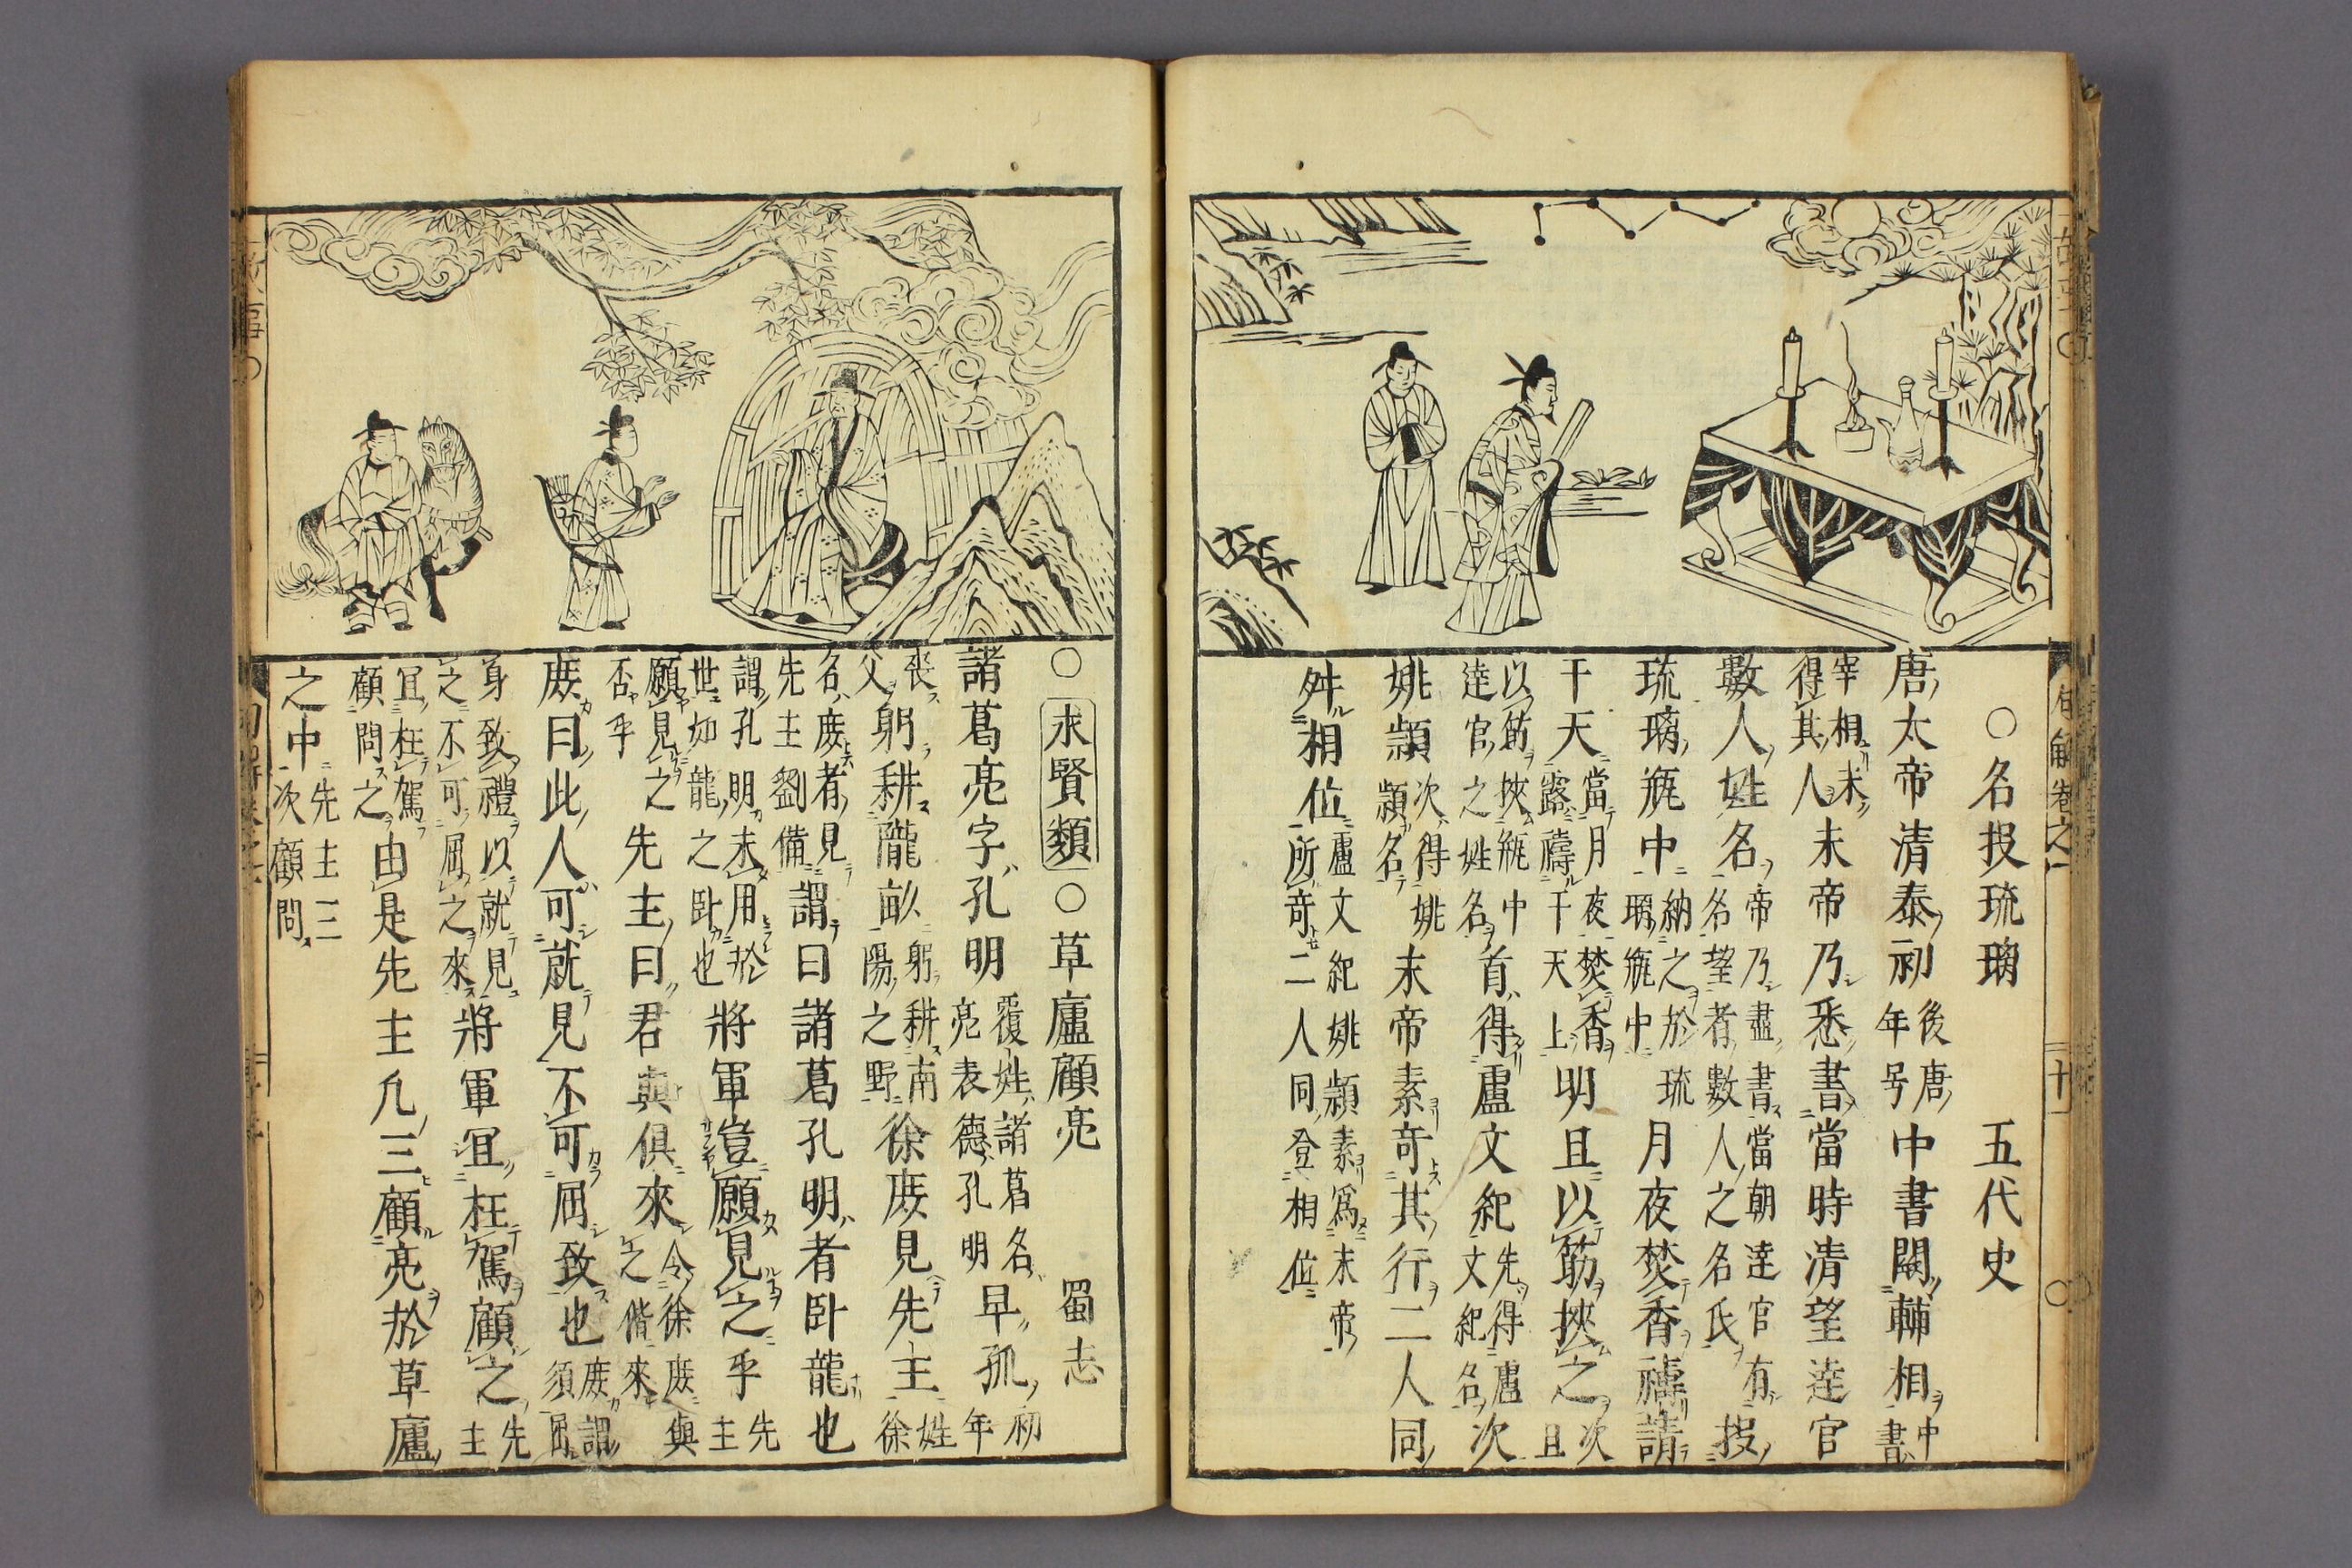 ○名投琉璃 五代史
唐太帝清泰初後唐年号中書闕輔相中書
宰相未得其人末帝乃悉書當時清望達官
數人姓名帝乃盡書當朝達官有名望者數人之名氏投
琉璃瓶中納之於琉璃瓶中月夜焚香禱請
于天當月夜焚香露禱于天上明旦以筯挾之次旦
以筯挾瓶中達官之姓名首得盧文紀先得盧文紀名次
姚顗次得姚顗名末帝素奇其行二人同
舛相位盧文紀姚顗素爲末帝所奇二人同登相位
句解卷之一 十
○求賢類○草廬顧亮 蜀志
諸葛亮字孔明覆姓諸葛名亮表德孔明早孤初年
喪父躬耕隴畝躬耕南陽之野徐庶見先主姓徐
名庶者見先主劉備謂曰諸葛孔明者臥龍也
謂孔明未用於世如龍之臥也將軍豈願見之乎先主
願見之否乎先主曰君與俱來令徐庶與之偕來
庶曰此人可就見不可屈致也庶謂須屈
身致禮以就見之不可屈之來將軍宜枉駕顧之先主
宜枉駕顧問之由是先主凡三顧亮於草廬
之中先主三次顧問